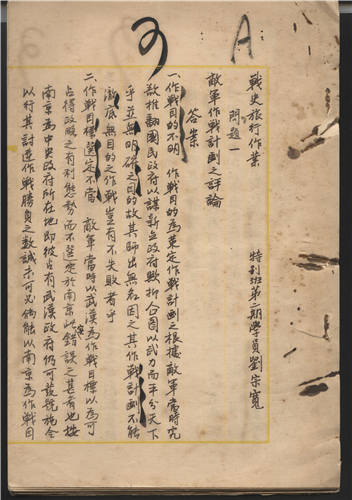 A
戰史旅行作業
特別班第二期學員劉宗寬
問題一
敵軍作戰計劃之評論
答案
一、作戰目的不明　作戰目的為策定作戰計劃之根據敵軍當時究
欲推翻國民政府以謀新立政府歟抑合圖以武力而平分天下
乎並無明確之目的故其師出無名因之其作戰計劃不能
澈底無目的之作戰豈有不失敗者乎
二、作戰目標選定不當　敵軍當時以武漢為作戰目標以為可
占得政略之有利態勢而不選定於南京此錯誤之甚者也按
南京為中央政府所在地即彼占有武漢政府仍可發號施令
以行其討逆作戰勝負之數誠未可必倘能以南京為作戰目